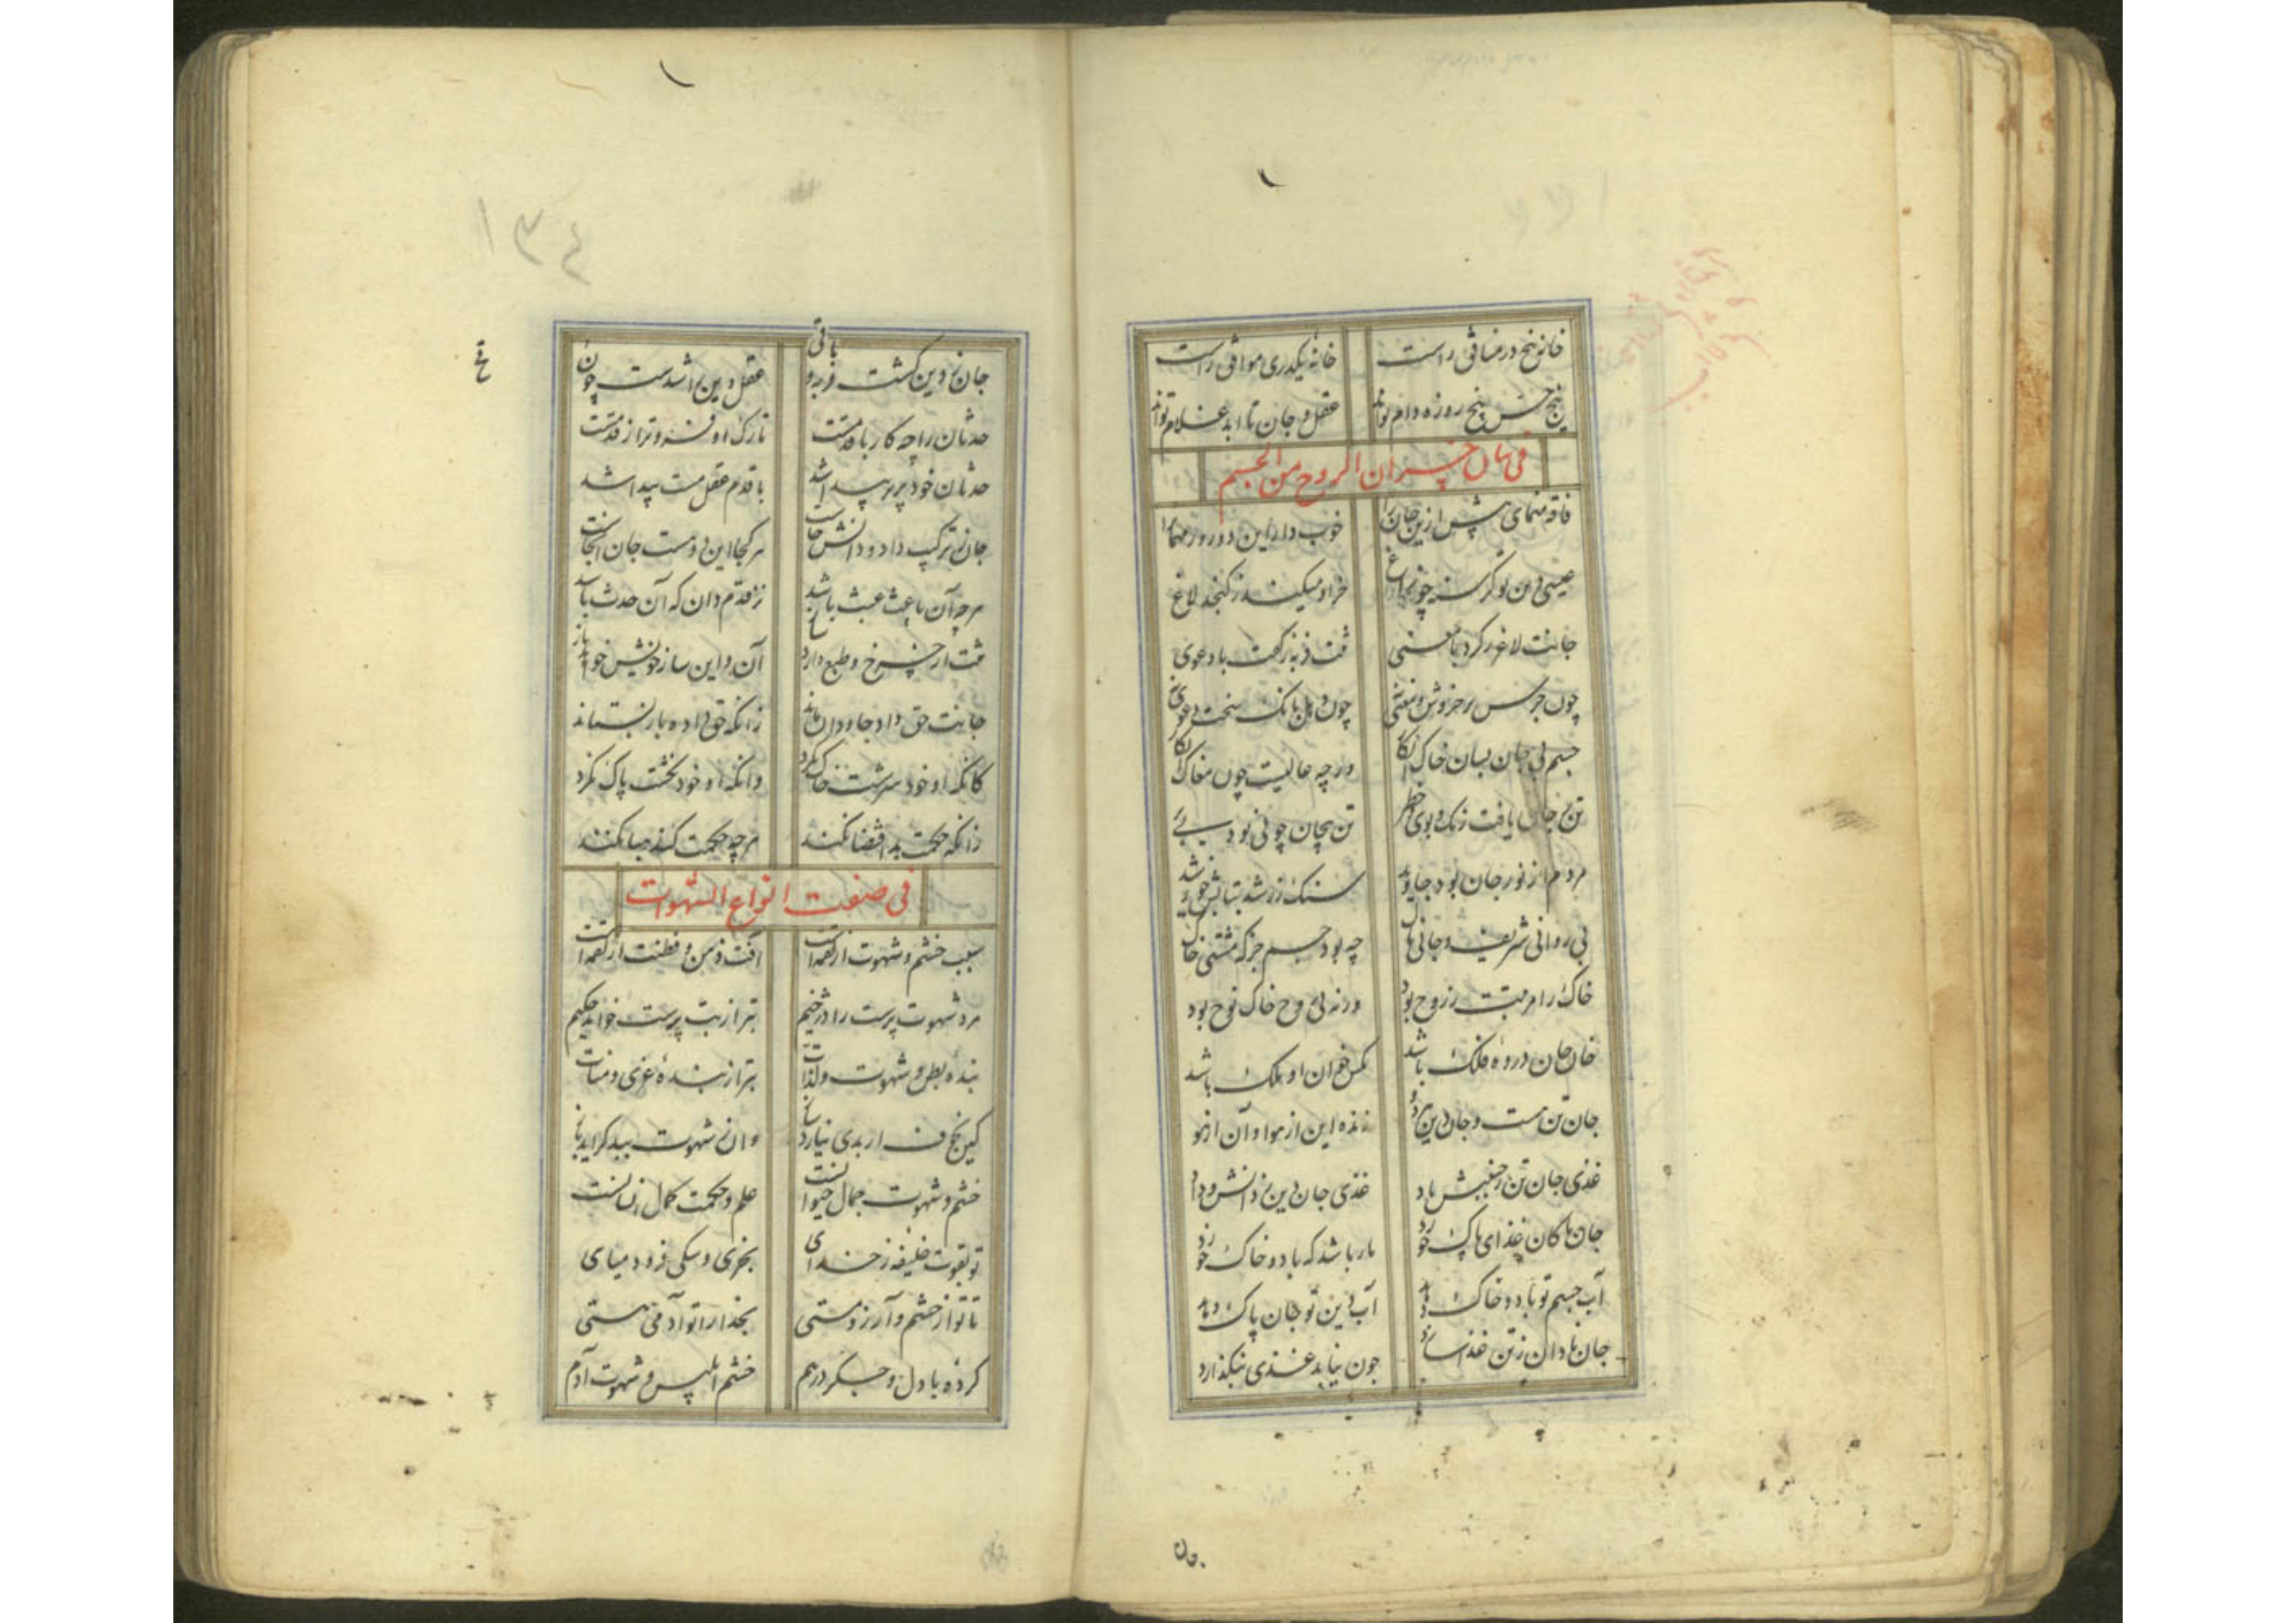 خانهٔ پنج در منافق راست خانهٔ یکدری موافق راست
پنج حس پنج روزه دام تواند عقل و جان تا ابد غلام تواند
فی بیان خسران الروح من الجسم
فاقه منمای پیش ازین جان را خوب دار این دو روزه مهمان را
عیسی جان تو گرسنه چو زاغ خر او میکند ز کنجد لاغ
جانت لاغر ز کرد بامعنی تنت فربه ز گفت بادعوی
چون جرس پر خروش و معنی نی چون دهل بانگ سخت و دعوی نی
جسم بی جان بسان خاک انگار ورچه عالیست چون مغاک انگار
تن ز جان یافت رنگ و بوی و خطر تن بیجان چو نی بود بی بر
مردم از نور جان بود جاوید سنگ زر شد بتابش خورشید
بی روانی شریف و جانی پاک چه بود جسم جز که مشتی خاک
خاک را مرتبت ز روح بود ورنه بی روح خاک نوح بود
خان جان در ره فلک باشد مگس خوان او ملک باشد
جان ز تن هست و جان ز دین هر دو زنده این از هوا و آن از هو
غذی جان تن ز جنبش باد غذی جان دین ز دانش و داد
جان پاکان غذای پاک خورد مار باشد که باد و خاک خورد
آب جسم تو باد و خاک دهد آب دین تو جان پاک دهد
جان نادان ز تن غذا سازد چون نیابد غذی بنگذارد
جان
۱۳۴
جان ز دین گشت فربه و باقی عقل و دین را شدست چون
قی
حدثان را چه کار با قدمست تارک او فروتر از قدمست
حدثان خود پریر پیدا شد با قدم عقل مست پیدا شد
جان ز ترکیب داد و دانش خاست هر کجا این دو هست جان آنجاست
هرچه آن باعث عبث باشد نز قدم دان که آن حدث باشد
تنت از چرخ و طبع دارد ساز آن و این ساز خویش خواهد باز
جانت حق داد جاودان ماند زانکه حق داده باز نستاند
کانکه او خود سرشت خاک نکرد وانکه او خود بکشت پاک نکرد
زانکه حکمت بد اقتضا نکند هرچه حکمت کند هبا نکند
فی صفت انواع الشهوات
سبب خشم و شهوت از لقمه است آفت ذهن و فطنت از لقمه است
مرد شهوت پرست را در خیم بتر از بت پرست خواند حکیم
بندهٔ بطن و شهوت و لذات بتر از بندهٔ عزی و منات
کین بجز ف از بدی نیارد ساز وان ز شهوت ببد گراید باز
خشم و شهوت جمال حیوانست علم و حکمت کمال انسانست
تو بقوت خلیفهٔ ز خدای بخری و سگی فرود میای
تا تو از خشم و آرزو مستی بخدا ار تو آدمی هستی
کرده با دل و جگر درهم خشم ابلیس و شهوت آدم